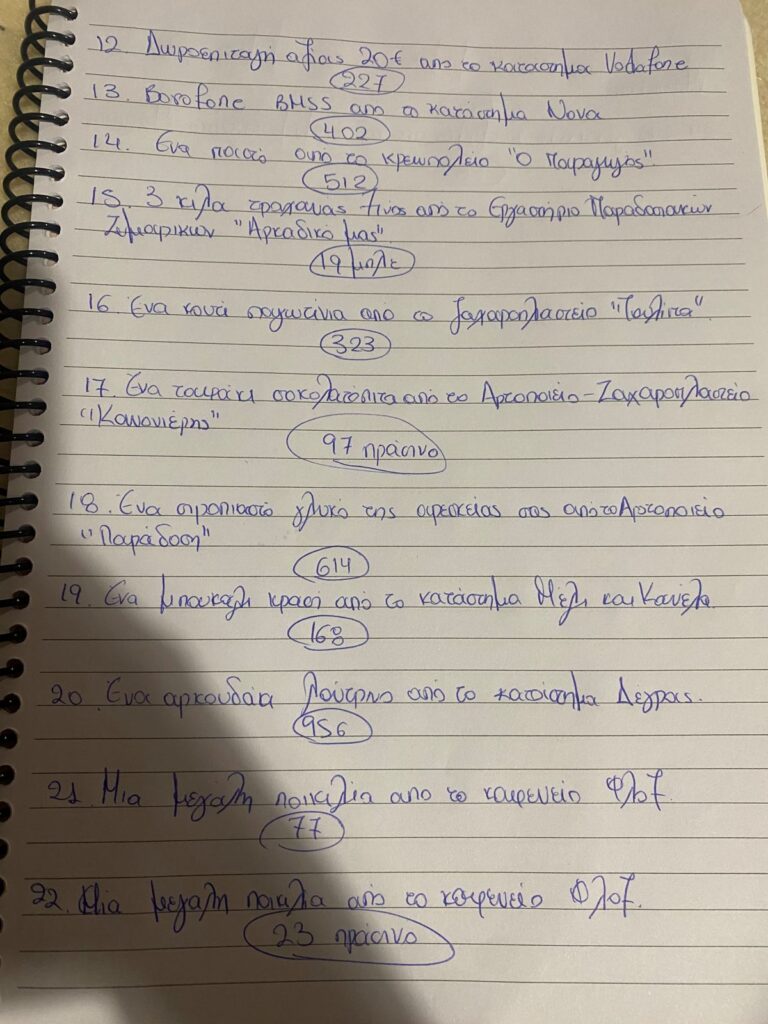 12. Δωροεπιταγή αξίας 20€ από το κατάστημα Vodafone
227
13. Borofone BHSS από το κατάστημα Nova
402
14. Ένα ποιοτό από το κρεωπολείο "Ο Παραγωγός".
512
15. 3 κιλα τραχανας από το Εργαστήριο Παραδοσιακών
Ζυμαρικών "Αρκαδικό μας".
19 μπλε
16. Ένα κουτί παγωτίνια από το ζαχαροπλαστείο "Τουλίπα".
323
17. Ένα ταψάκι σοκολατόπιτα από το Αρτοποιείο - Ζαχαροπλαστείο
"Κανονιέρης"
97 πράσινο
18. Ένα σιροπιαστό γλυκό της αρεσκείας σας από το Αρτοποιείο
"Παράδοση"
614
19. Ένα μπουκάλι κρασί από το κατάστημα Μέλι και Κανέλα.
168
20. Ένα αρκουδάκι λούτρινο από το κατάστημα Δέγρας.
956
21. Μια μεγάλη ποικιλία από το καφενείο Φλοζ.
77
22. Μια μεγαλη ποικιλια από το καφενείο Φλοζ.
23 πράσινο